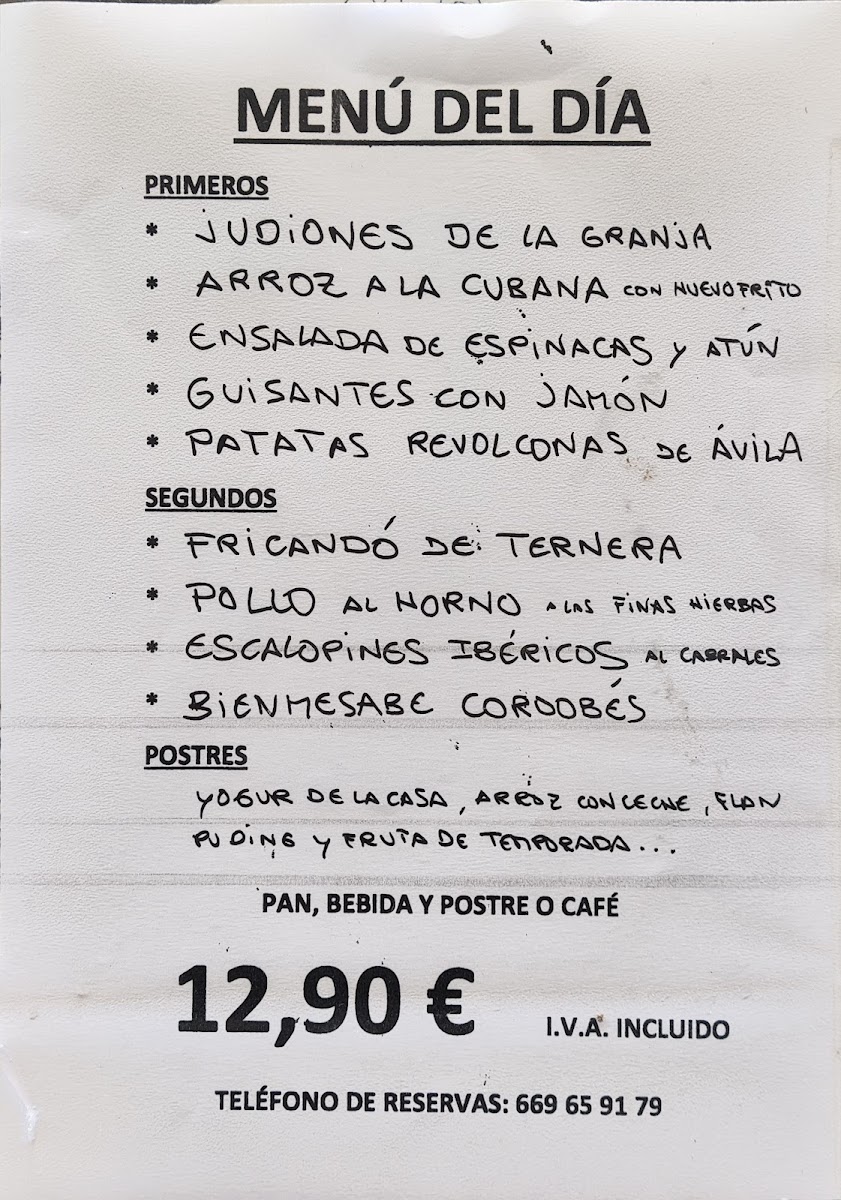 MENÚ DEL DÍA
PRIMEROS
* JUDIONES DE LA GRANJA
* ARROZ A LA CUBANA CON HUEVO FRITO
* ENSALADA DE ESPINACAS Y ATÚN
* GUISANTES CON JAMÓN
* PATATAS REVOLCONAS DE ÁVILA
SEGUNDOS
* FRICANDÓ DE TERNERA
* POLLO AL HORNO A LAS FINAS HIERBAS
* ESCALOPINES IBÉRICOS AL CABRALES
* BIENMESABE CORDOBÉS
POSTRES
YOGUR DE LA CASA, ARROZ CON LECHE, FLAN
PUDING Y FRUTA DE TEMPORADA...
PAN, BEBIDA Y POSTRE O CAFÉ
12,90 € I.V.A. INCLUIDO
TELÉFONO DE RESERVAS: 669 65 91 79